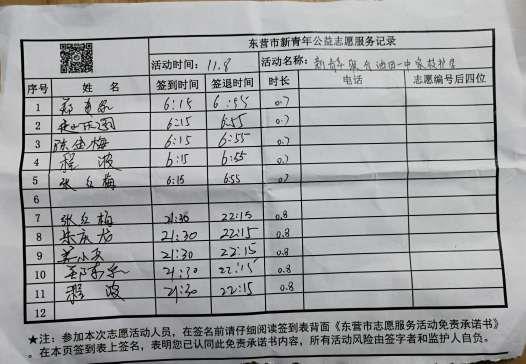 东营市新青年公益志愿服务记录
活动时间： 11.8 活动名称：
序号 姓 名 签到时间 签退时间 时长 电话 志愿编号后四位
1 6:15 6:55 0.7
2 6:15 6:55 0.7
3 陈佳梅 6:15 6:55 0.7
4 程波 6:15 6:55 0.7
5 张红梅 6:15 6:55 0.7
6
7 张红梅 21:30 22:15 0.8
8 宋庆龙 21:30 22:15 0.8
9 21:30 22:15 0.8
10 21:30 22:15 0.8
11 程波 21:30 22:15 0.8
12
★注：参加本次志愿活动人员，在签名前请仔细阅读签到表背面《东营市志愿服务活动免责承诺书》
。在本页签到表上签名，表明您已认同此免责承诺书内容，所有活动风险由签字者和监护人自负。